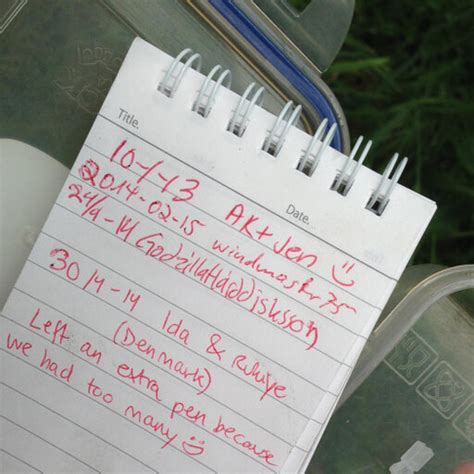 Title.
Date.
10-1-13 AK + Jen
2014-02-15 windmaster75
24/9-14
30/4-14 Ida & Rikiye
(Denmark)
Left an extra pen because
we had too
many